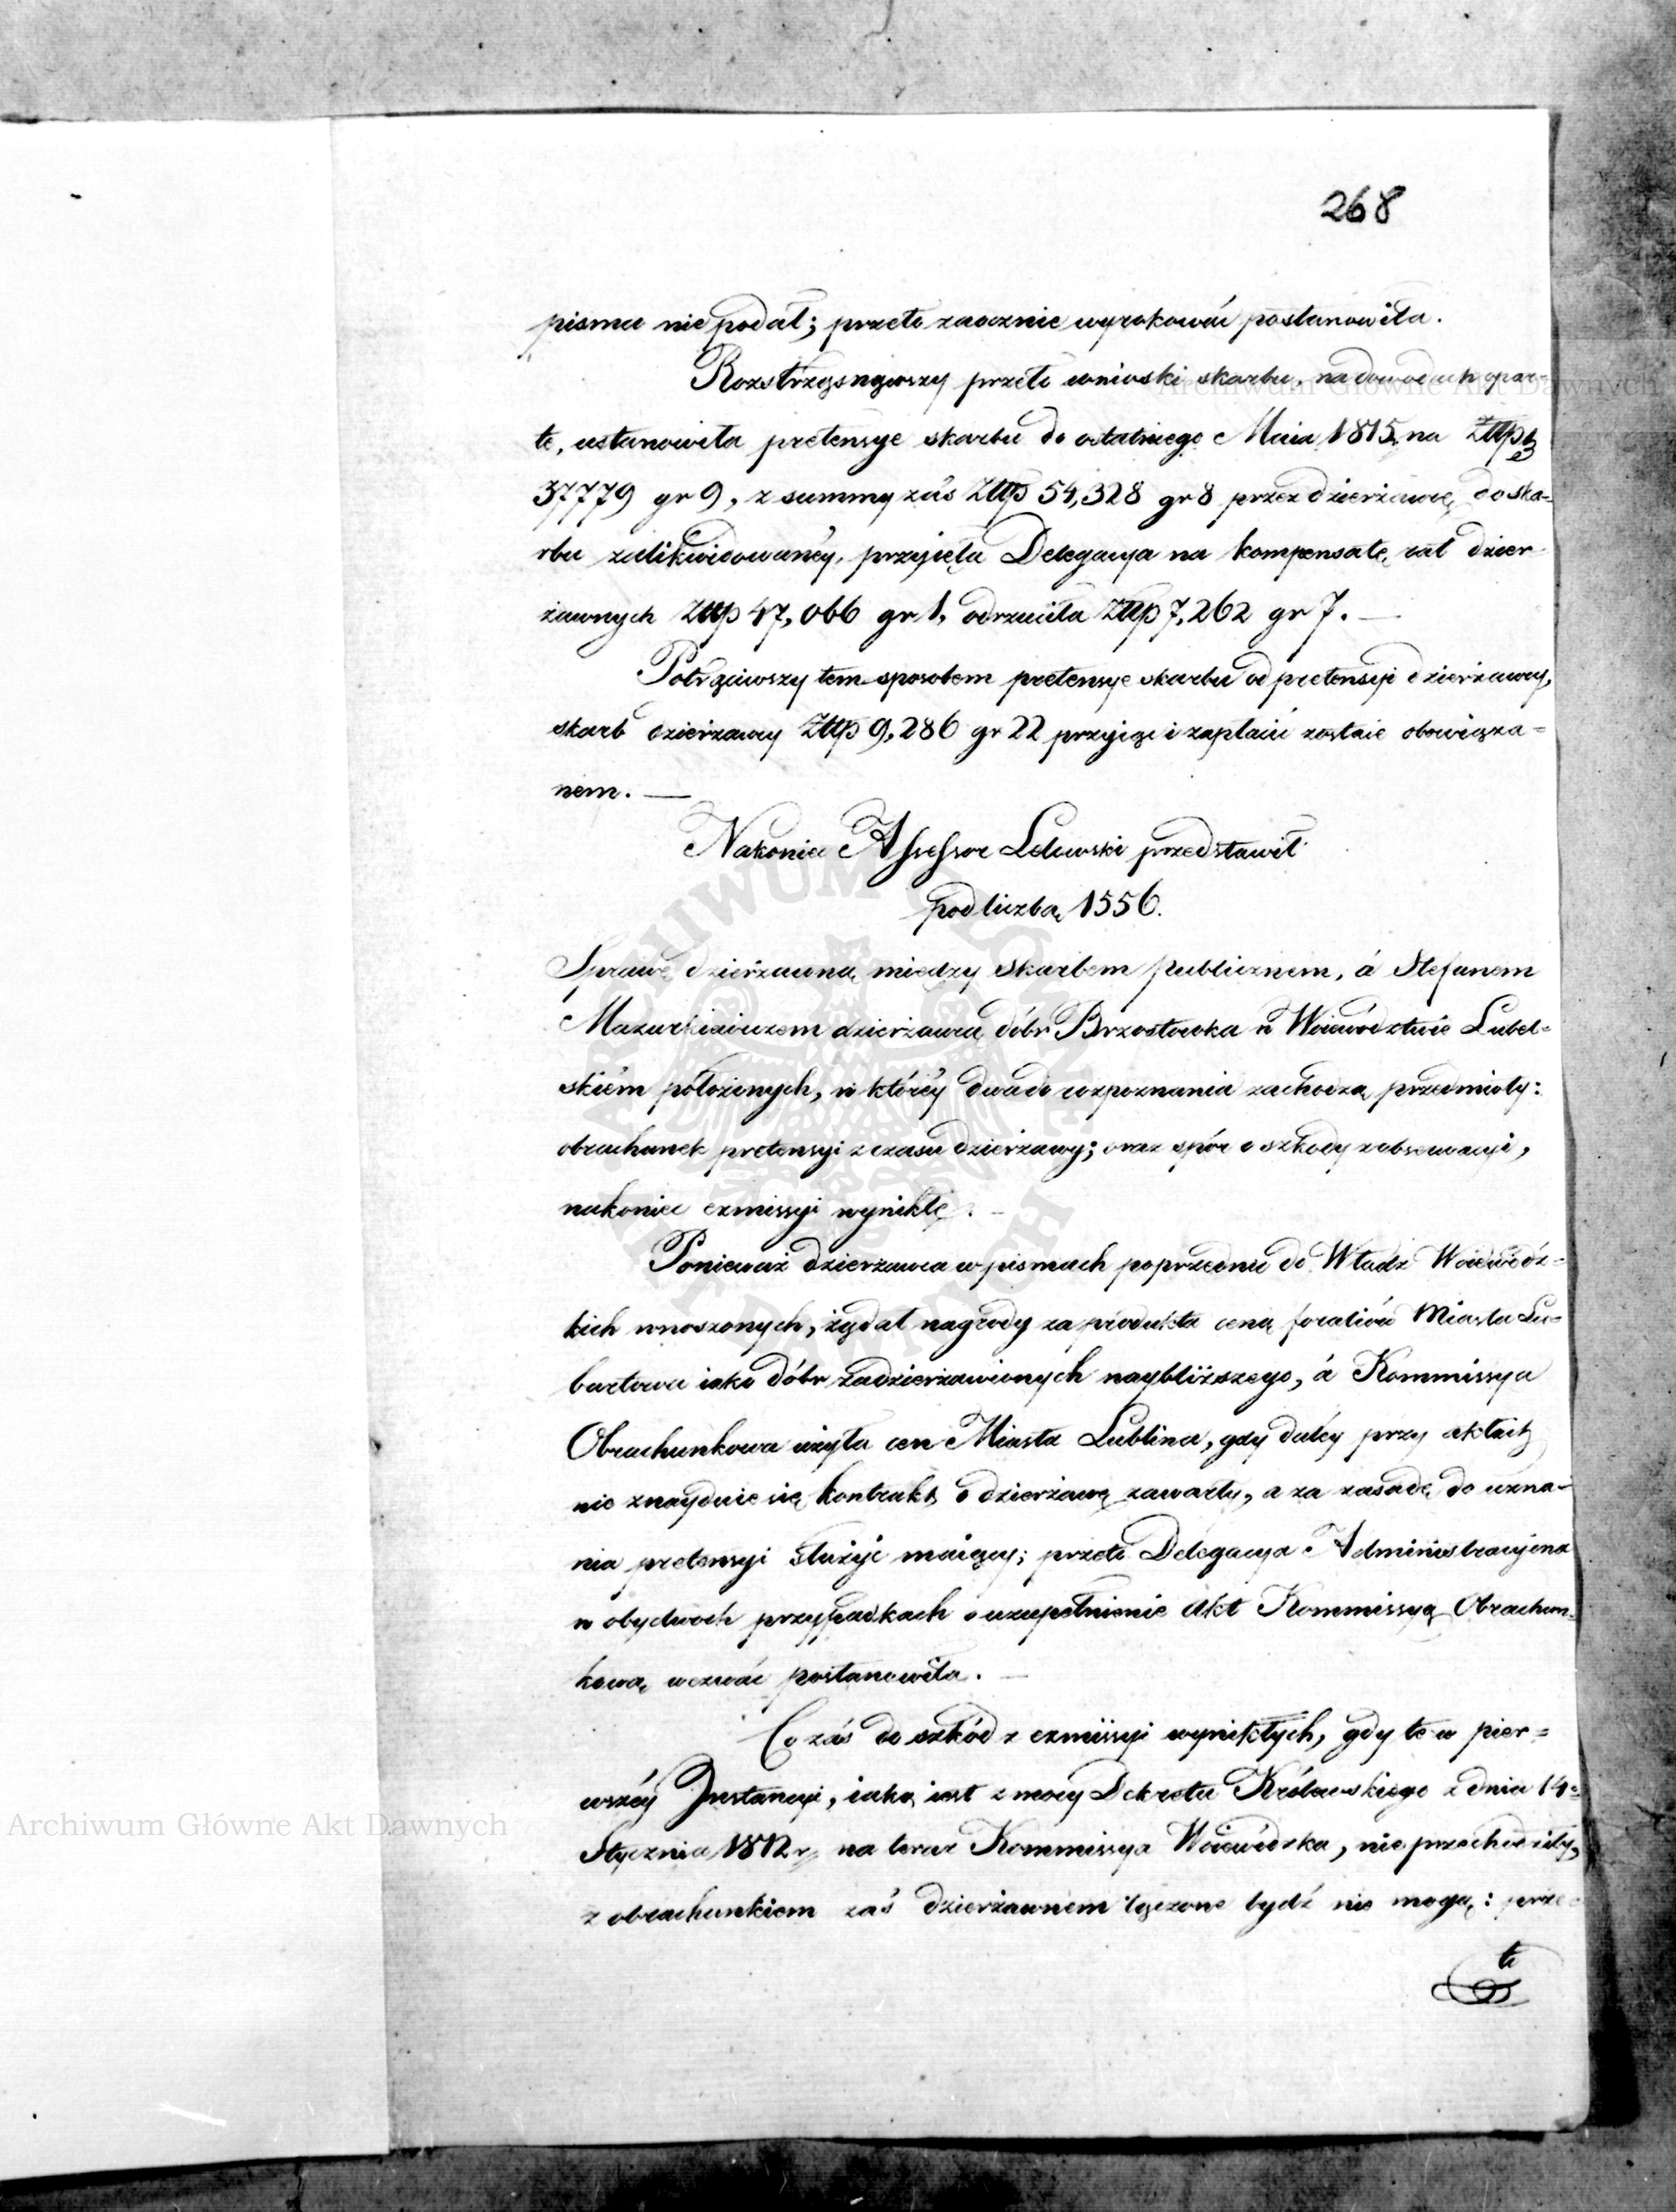 268
pisma nie podał; przeto zaocznie wyrokować postanowiła.
Rozstrząsnąwszy przeto wnioski skarbu, na dowodach opar=
te, ustanowiła pretensye skarbu do ostatniego Maia 1815 na Złtp
37779 gr 9, z summy zaś Złtp 54,328 gr 8 przez dzierżawcę do ska=
rbu zalikwidowanéy, przyięła Delegacya na kompensatę rat dzier
żawnych Złtp 47,066 gr 1, odrzuciła Złtp 7,262 gr 7. —
Potrąciwszy tem sposobem pretensye skarbu od pretensyi dzierżawcy,
skarb dzierżawcy Złtp 9,286 gr 22 przyiąć i zapłacić zostaie obowiąza=
nem. —
Nakoniec Assessor Lelewski przedstawił
pod liczbą 1556.
Sprawę dzierżawną między skarbem publicznem, á Stefanem
Mazurkiewiczem dzierżawcą dóbr Brzostowka w Woiewództwie Lubel=
skiém położonych, w któréy dwa do rozpoznania zachodzą przedmioty:
obrachunek pretensyi z czasu dzierżawy; oraz spór o szkody z obserwacyi,
nakoniec exmissyi wynikłe. —
Ponieważ dzierżawca w pismach poprzednio do Władz Woiewódz=
kich wnoszonych, żądał nagrody za produkta ceną foraliów Miasta Lu=
bartowa iako dóbr zadzierżawionych naybliższego, á Kommissya
Obrachunkowa użyła cen Miasta Lublina, gdy daléy przy aktach
nie znayduie się kontrakt o dzierżawę zawarty, a za zasadę do uzna=
nia pretensyi służyć maiący; przeto Delegacya Administracyjna
w obydwoch przypadkach o uzupełnienie akt Kommissyą Obrachun=
kową wezwać postanowiła. —
Co zaś do szkód z exmissyi wynikłych, gdy te w pier=
wszéy Instancyi, iaką iest z mocy Dekretu Królewskiego z dnia 14=
Stycznia 1812 r, na teraz Kommissya Woiewódzka, nie przechodziły,
z obrachunkiem zaś dzierżawnem łączone bydź nie mogą: prze=
to
Archiwum Główne Akt Dawnych
Archiwum Główne Akt Dawnych